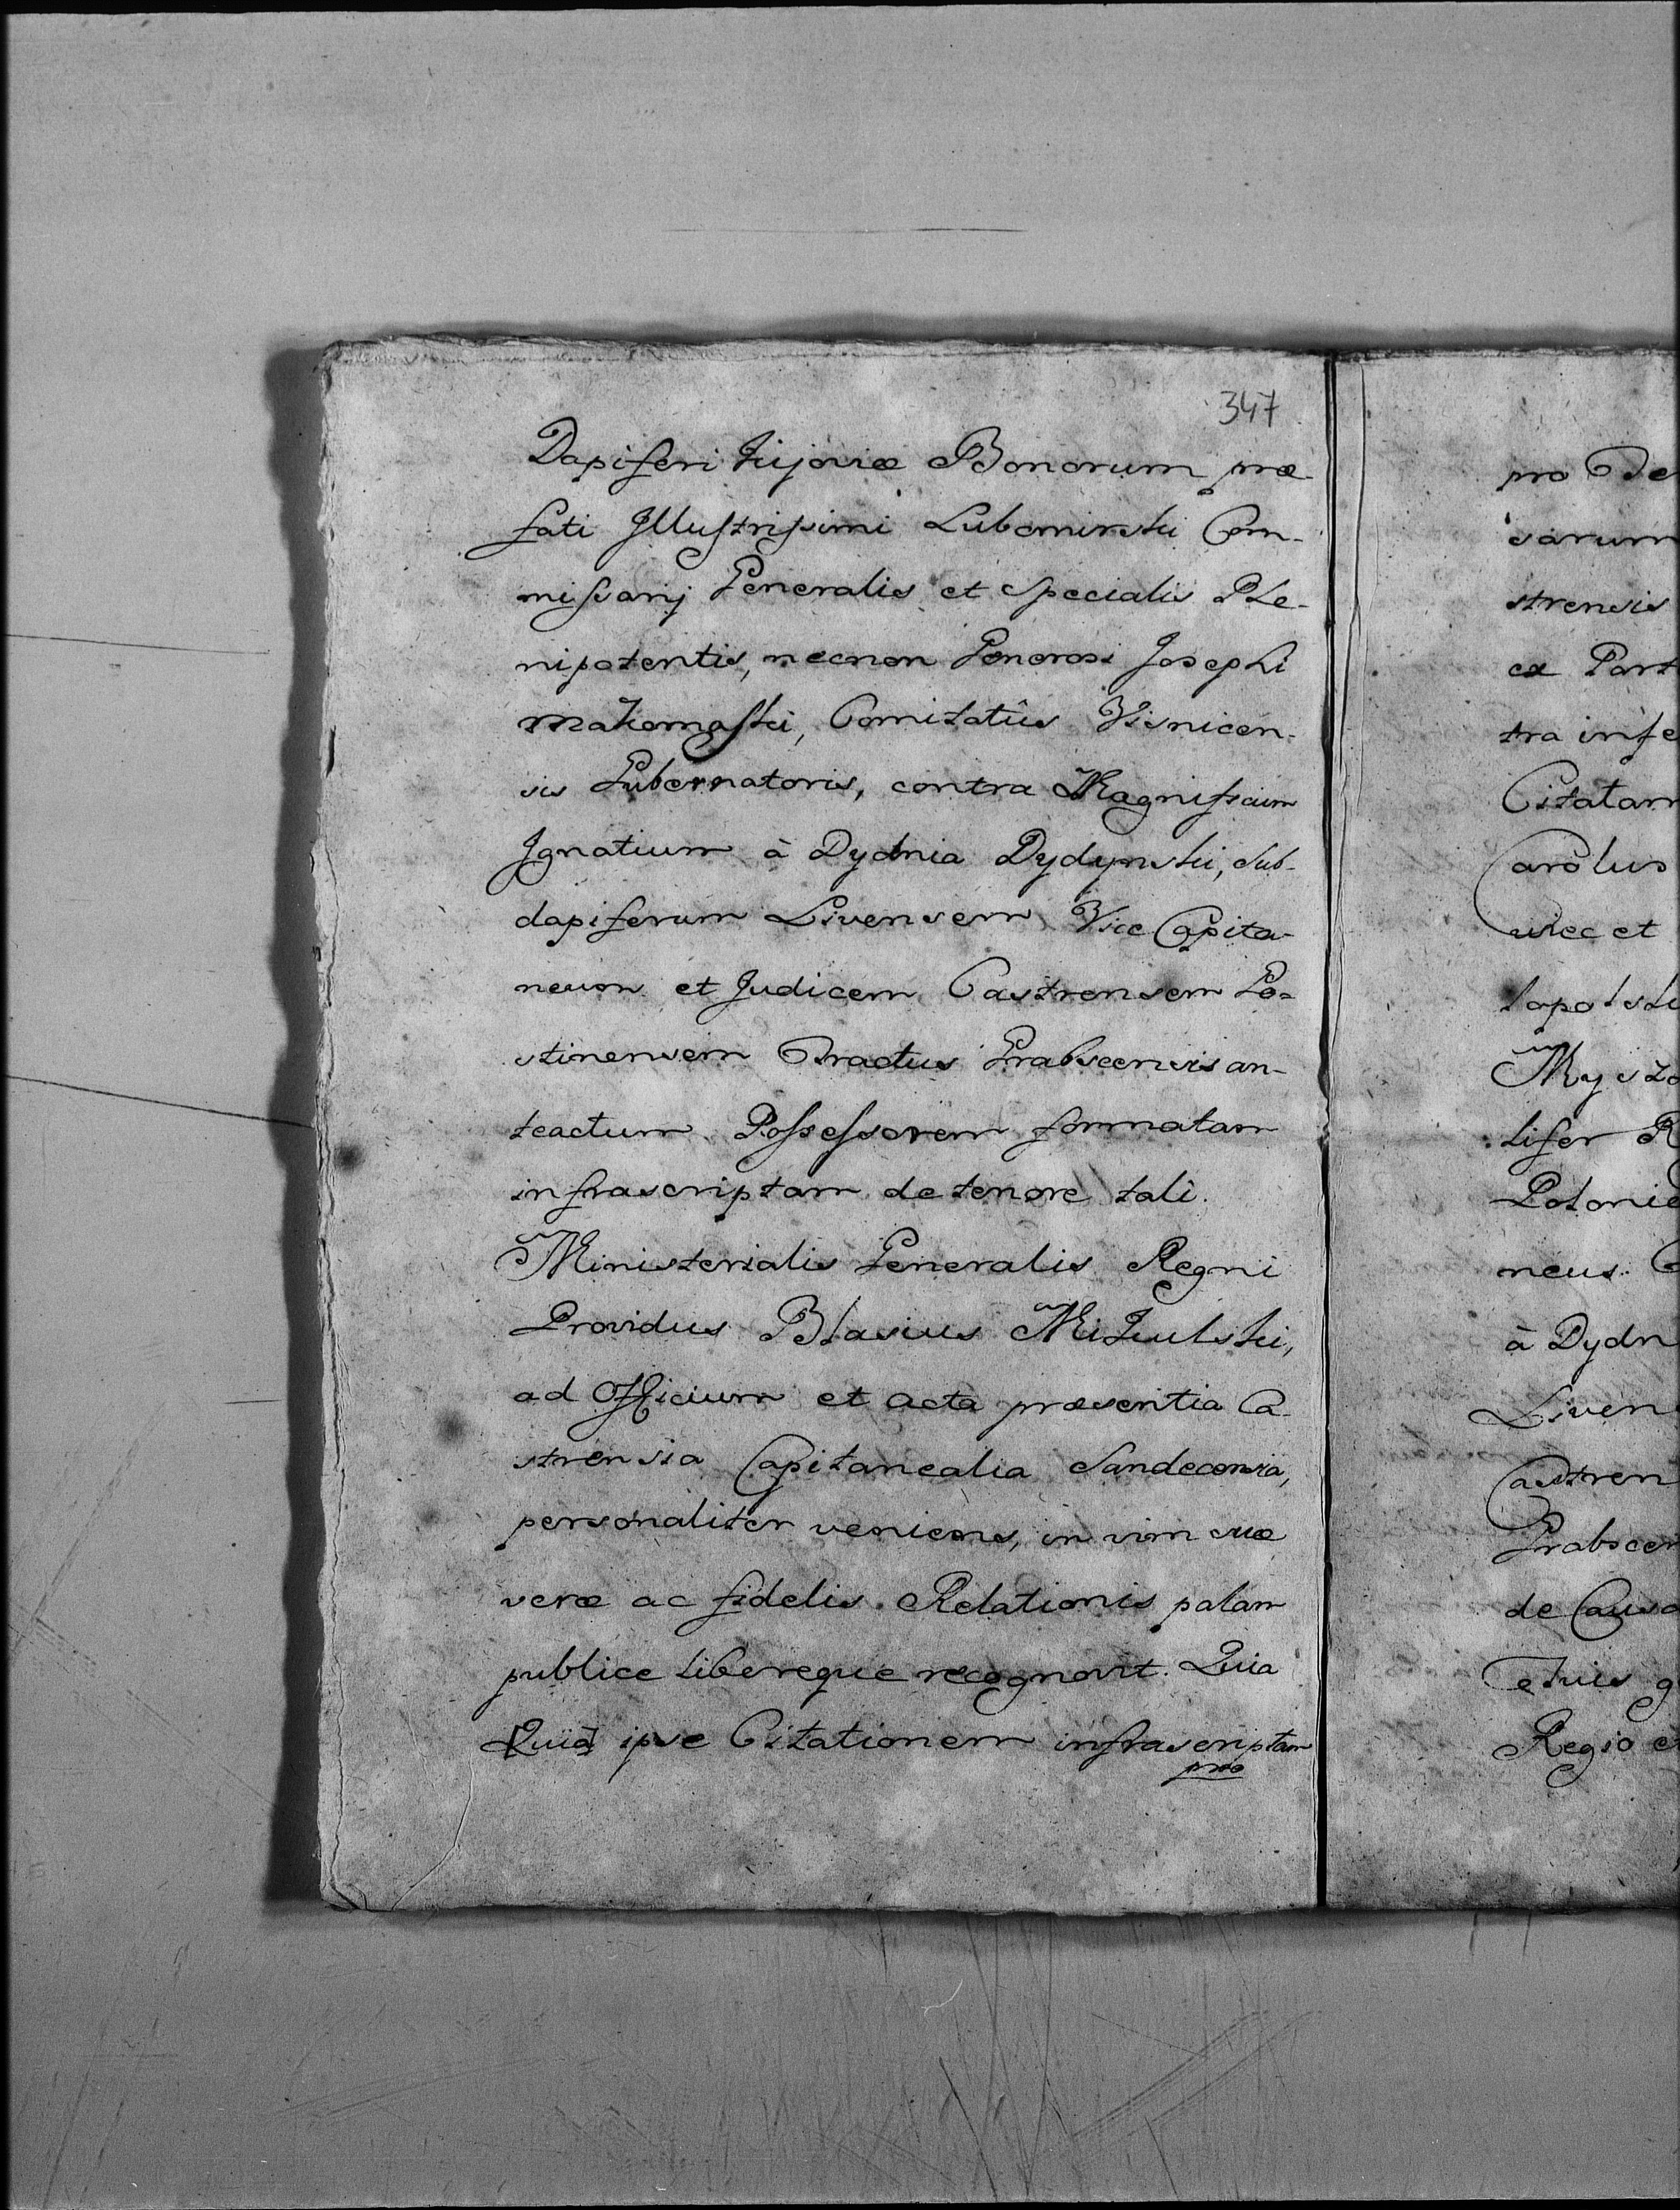 347
Dapiferi Kijoviæ Bonorum præ-
fati Illustrissimi Lubomirski Com-
missarij Generalis et Specialis Ple-
nipotentis, necnon Generosi Josephi
Makomaski, Comitatûs Visnicen-
sis Gubernatoris, contra Magnificum
Ignatium à Dydnia Dydynski, Sub-
dapiferum Livensem Vice Capita-
neum et Judicem Castrensem Go-
stinensem Tractus Grabscensis an-
teactum Possessorem formatam
infrascriptam de tenore tali.
Ministerialis Generalis Regni
Providus Blasius Mikulski,
ad Officium et Acta præsentia Ca-
strensia Capitanealia Sandecensia,
personaliter veniens, in vim suæ
veræ ac fidelis Relationis palam
publice libereque recognovit. Quia
[Quia] ipse Citationem infrascriptam
pro
pro De
sarum
strensis
ex Part
tra infe
Citatam
Carolus
usec et
lopolski
Mysz
lifer R
Polonie
neus C
à Dydn
Liven
Castren
Grabscen
de Causa
Regio e